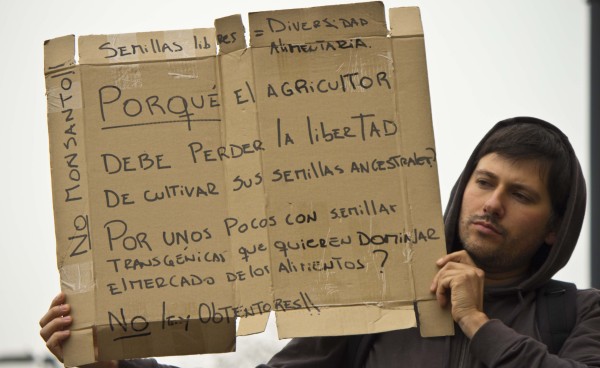 Semillas libres = Diversidad
Alimentaria.
NO MONSANTO!!!
PORQUÉ El AGRICULTOR
DEBE PERDER lA lIBERTAD
DE CULTIVAR SUS SEMILLAS ANCESTRALES?
POR UNOS POCOS CON SEMILLAS
TRANSGÉNICAS QUE QUIEREN DOMINAR
El MERCADO DE lOS AlIMENTOS?
NO lEY OBTENTORES!!